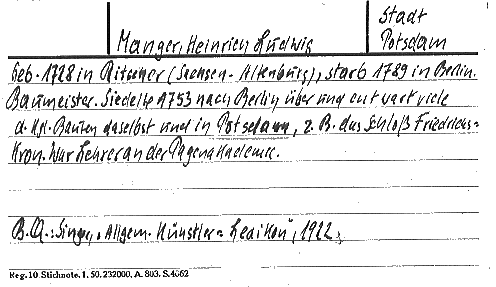 Stadt
Manger, Heinrich Ludwig Potsdam
Geb. 1728 in Ritscher (Sachsen-Altenburg), starb 1789 in Berlin.
Baumeister. Siedelte 1753 nach Berlin über und entwarf viele
d. Kgl. Bauten daselbst und in Potsdam, z. B. das Schloß Friedrichs=
Kron. War Lehrer an der Pagenakademie.
B. A.: Singer, Allgem. Künstler=Lexikon, 1922.
Reg. 10 Stichnote. 1. 50. 232000. A. 803. S. 4662